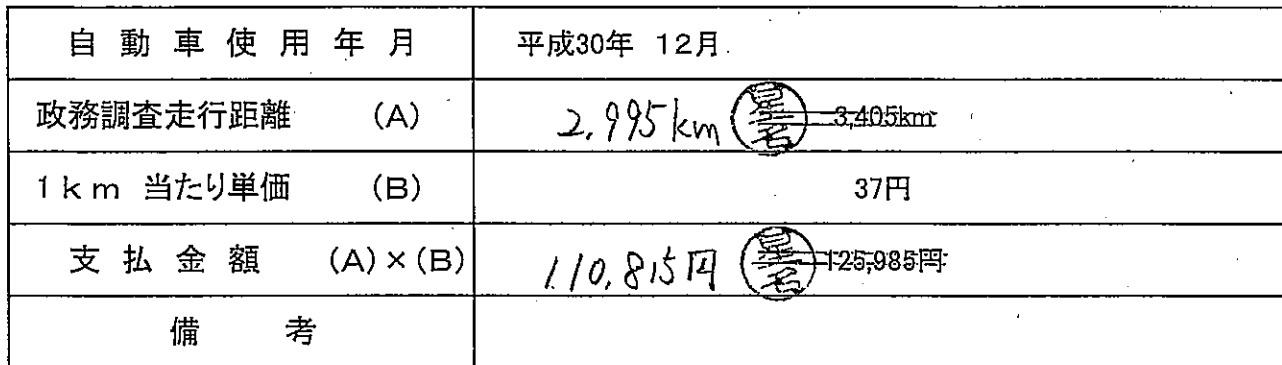 自動車使用年月 平成30年 12月
政務調査走行距離 (A) 2,995km 星名 3,405km
1km 当たり単価 (B) 37円
支払金額 (A)×(B) 110,815円 星名 125,985円
備考